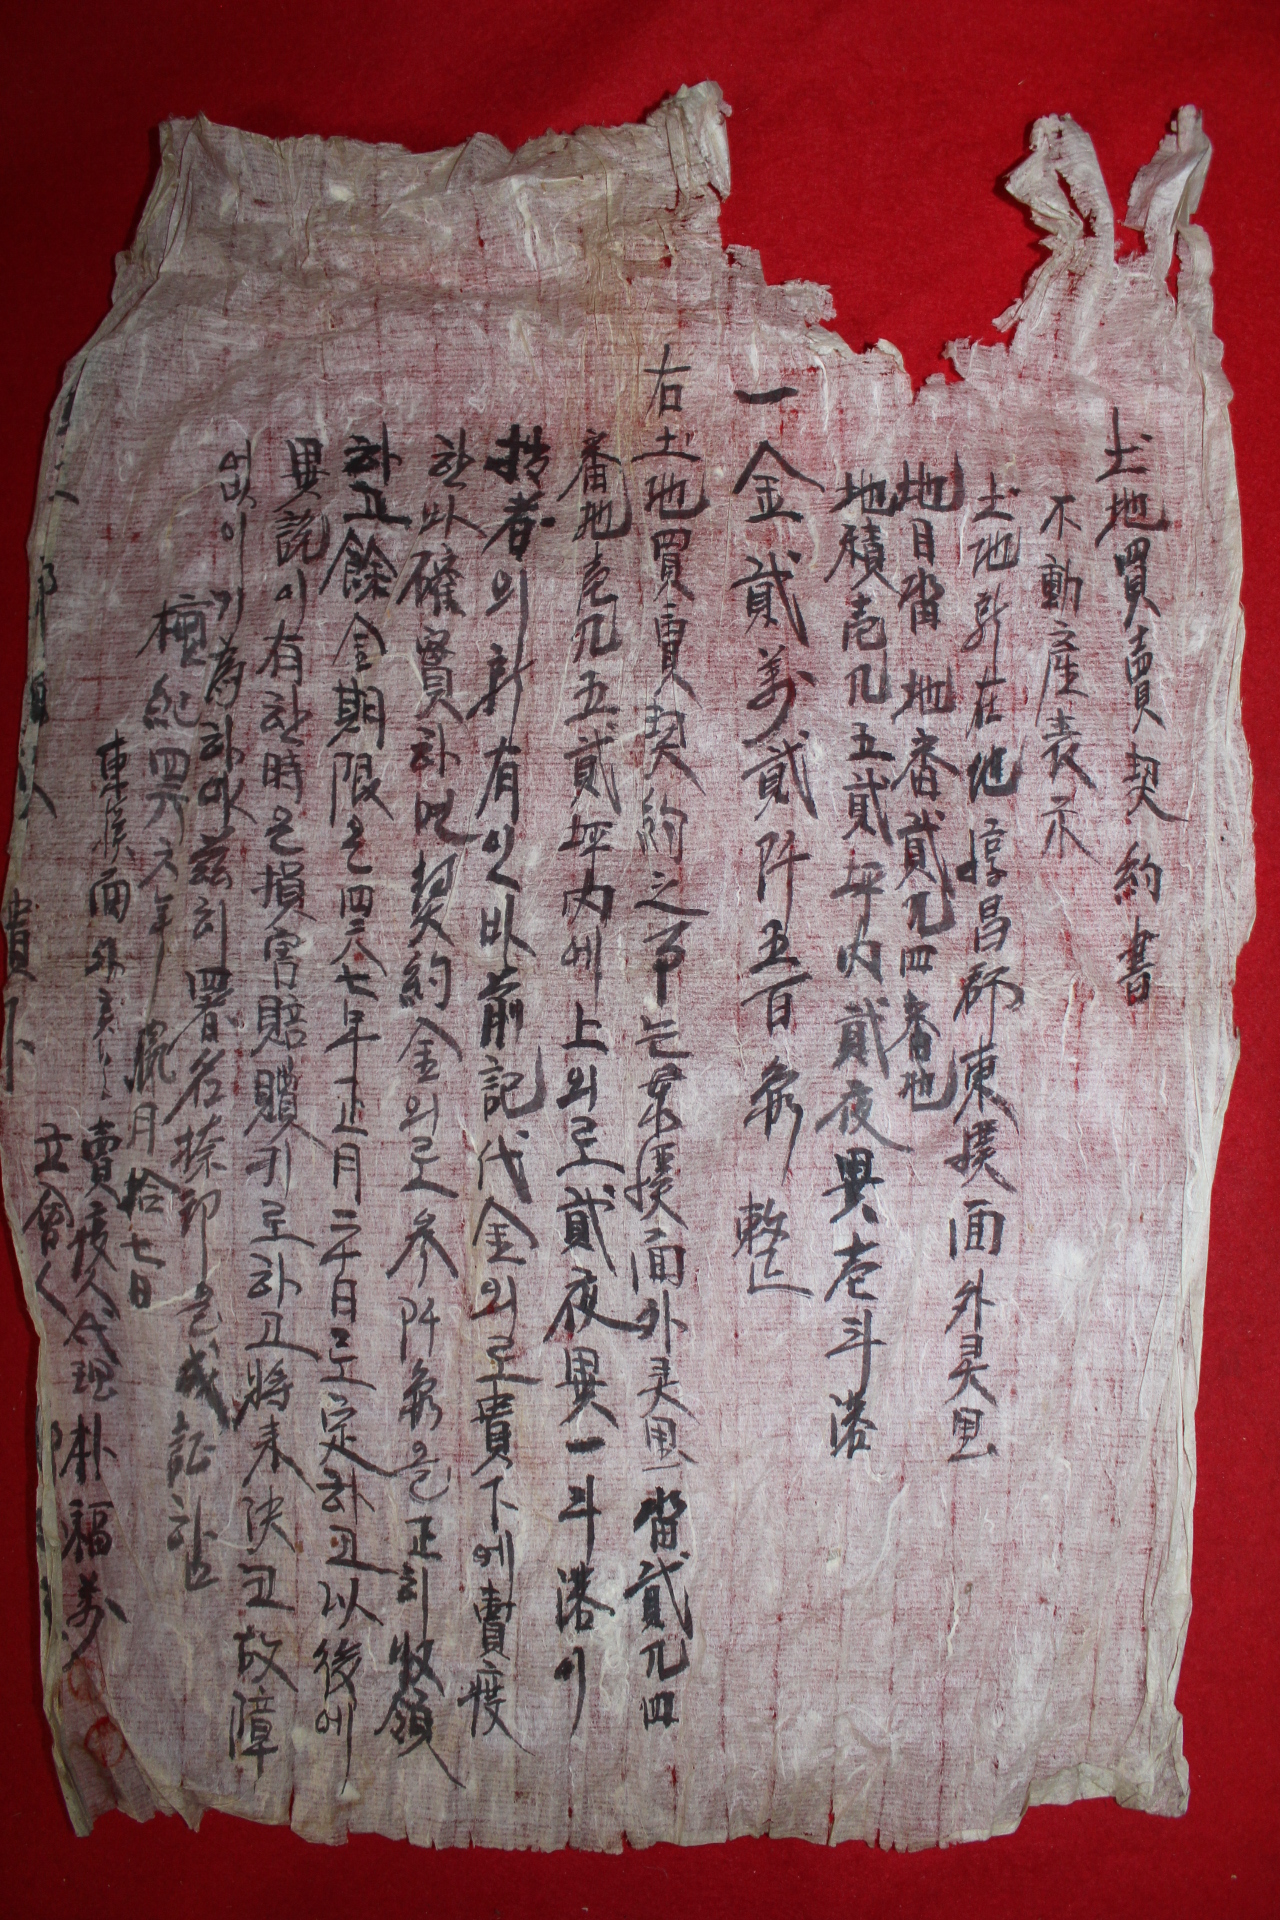 土地買賣契約書
不動産表示
土地所在地 淳昌郡 東溪面 外灵里
地目畓 地番貳九四番地
地積壱九五貳坪内貳夜異壱斗落
一金貳萬貳阡五百㒱整
右土地買賣契約之事는東溪面外灵里 畓貳九四
番地壱九五貳坪内에 上의로貳夜異一斗落이
拙者의所有인바前記代金의로貴下에賣渡
한바確實하며契約金의로參阡㒱을正히收領
하고餘金期限은四二八七年正月二十日로定하고以後에
異說이有한時은損害賠贖키로하고將来決코故障
업이기爲하야玆히署名捺印을成証함
檀紀四二八六年 臘月拾七日
東溪面外灵 賣渡人代理 朴福萬
立會人
貴下